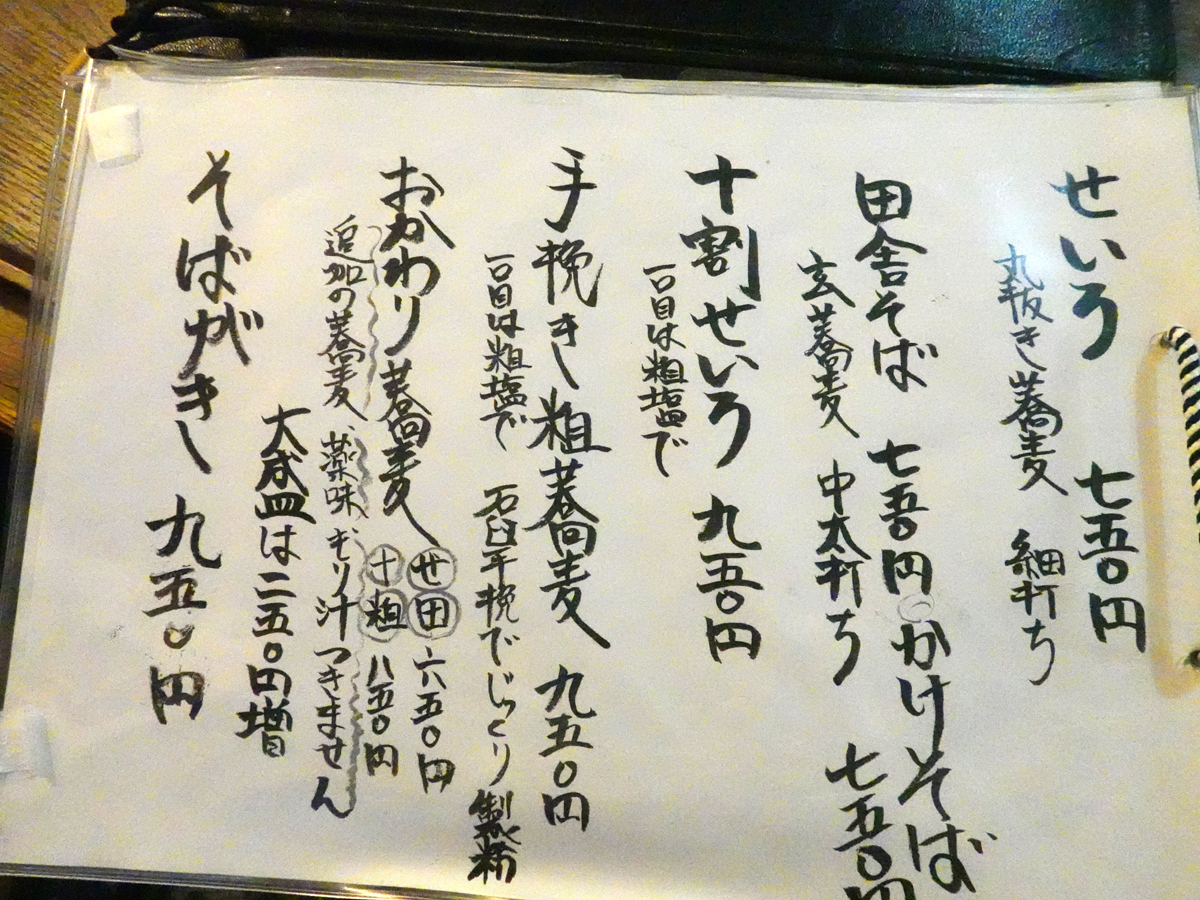 せいろ 七五〇円
丸抜き蕎麦 細打ち
田舎そば 七五〇円
かけそば 七五〇円
玄蕎麦 中太打ち
十割せいろ 九五〇円
一口目は粗塩で
手挽き粗蕎麦 九五〇円
一口目は粗塩で 石臼手挽でじっくり製粉
おかわり蕎麦 せ 田 六五〇円
十 粗 八五〇円
追加の蕎麦、薬味、もり汁つきません
大盛は二五〇円増
そばがき 九五〇円